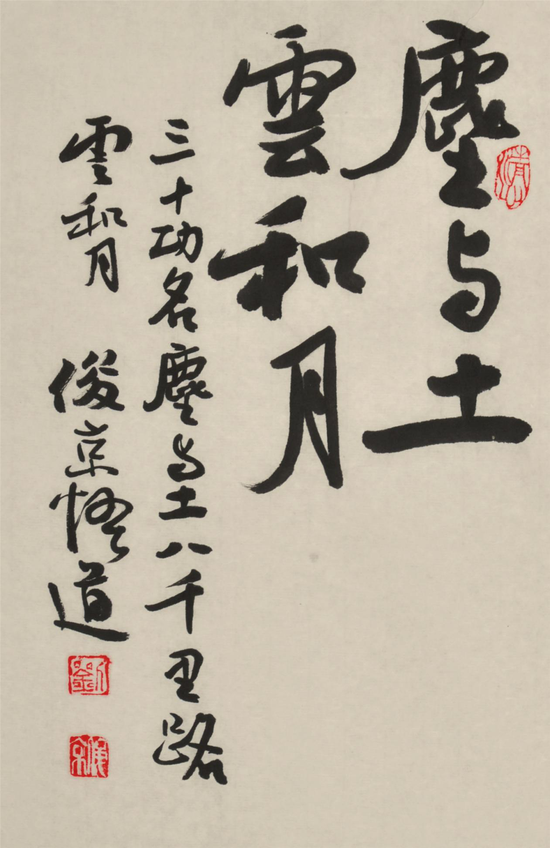 塵与土
雲和月
三十功名塵与土八千里路
雲和月 俊京悟道
劉
俊京